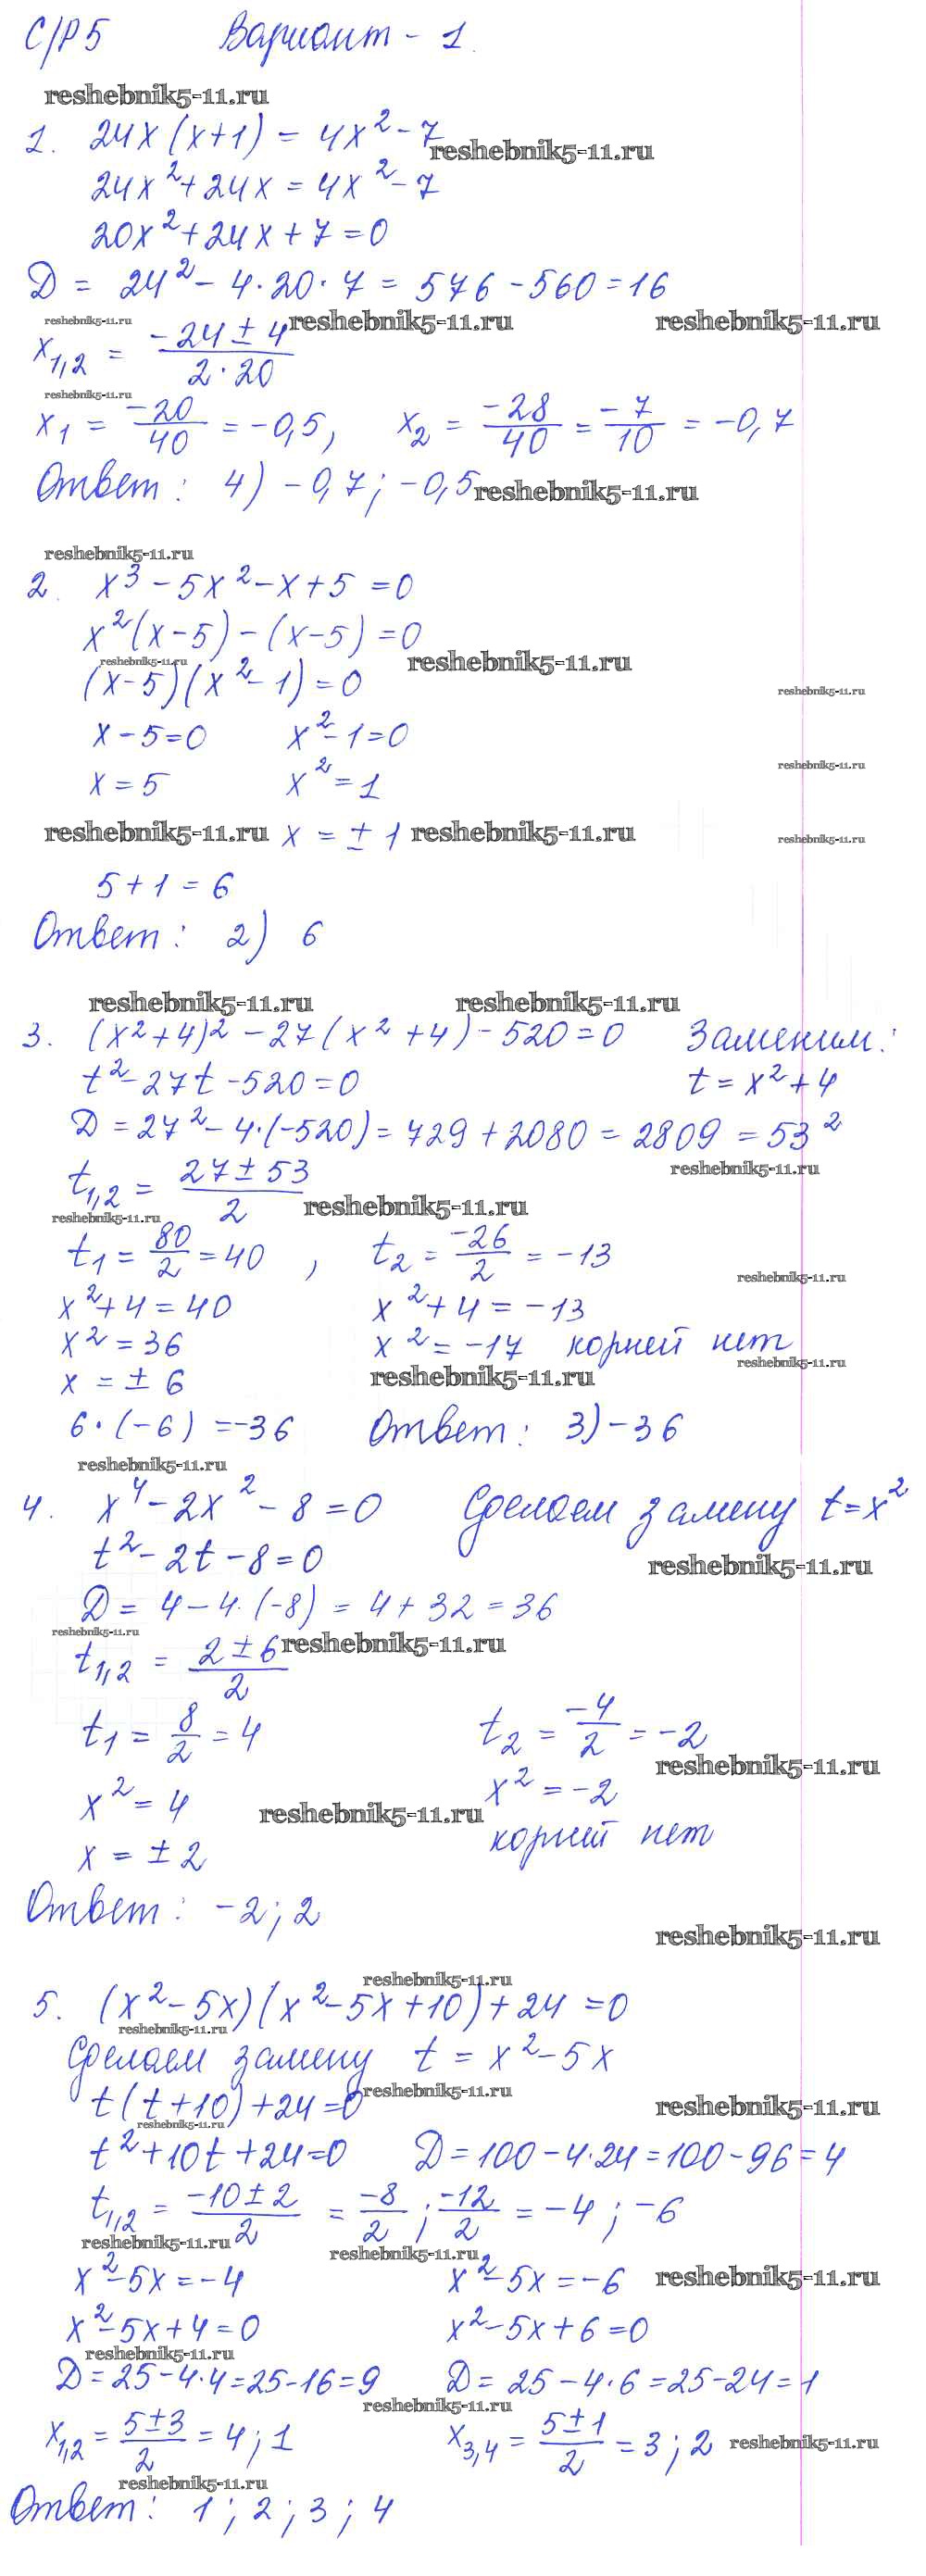 С/Р 5 Вариант - 1.
reshebnik5-11.ru
1. 24x(x+1) = 4x² - 7
reshebnik5-11.ru
24x² + 24x = 4x² - 7
20x² + 24x + 7 = 0
D = 24² - 4·20·7 = 576 - 560 = 16
reshebnik5-11.ru reshebnik5-11.ru reshebnik5-11.ru
x₁,₂ = (-24 ± 4)/(2·20)
reshebnik5-11.ru
x₁ = -20/40 = -0,5, x₂ = -28/40 = -7/10 = -0,7
Ответ: 4) -0,7; -0,5 reshebnik5-11.ru
reshebnik5-11.ru
2. x³ - 5x² - x + 5 = 0
x²(x-5) - (x-5) = 0
reshebnik5-11.ru reshebnik5-11.ru
(x-5)(x²-1) = 0
reshebnik5-11.ru
x - 5 = 0 x² - 1 = 0
reshebnik5-11.ru
x = 5 x² = 1
reshebnik5-11.ru x = ± 1 reshebnik5-11.ru reshebnik5-11.ru
5 + 1 = 6
Ответ: 2) 6
reshebnik5-11.ru reshebnik5-11.ru
3. (x²+4)² - 27(x²+4) - 520 = 0 Заменим:
t² - 27t - 520 = 0 t = x² + 4
D = 27² - 4·(-520) = 729 + 2080 = 2809 = 53²
reshebnik5-11.ru
t₁,₂ = (27 ± 53)/2 reshebnik5-11.ru
reshebnik5-11.ru
t₁ = 80/2 = 40 , t₂ = -26/2 = -13
reshebnik5-11.ru
x² + 4 = 40 x² + 4 = -13
x² = 36 x² = -17 корней нет
reshebnik5-11.ru
x = ± 6 reshebnik5-11.ru
6·(-6) = -36 Ответ: 3) -36
reshebnik5-11.ru
4. x⁴ - 2x² - 8 = 0 Сделаем замену t = x²
t² - 2t - 8 = 0 reshebnik5-11.ru
D = 4 - 4·(-8) = 4 + 32 = 36
reshebnik5-11.ru
t₁,₂ = (2 ± 6)/2 reshebnik5-11.ru
t₁ = 8/2 = 4 t₂ = -4/2 = -2
reshebnik5-11.ru
x² = 4 x² = -2
reshebnik5-11.ru
x = ± 2 корней нет
Ответ: -2; 2
reshebnik5-11.ru
reshebnik5-11.ru
5. (x² - 5x)(x² - 5x + 10) + 24 = 0
reshebnik5-11.ru
Сделаем замену t = x² - 5x
reshebnik5-11.ru
t(t+10) + 24 = 0 reshebnik5-11.ru
reshebnik5-11.ru
t² + 10t + 24 = 0 D = 100 - 4·24 = 100 - 96 = 4
t₁,₂ = (-10 ± 2)/2 = -8/2; -12/2 = -4; -6
reshebnik5-11.ru reshebnik5-11.ru
x² - 5x = -4 x² - 5x = -6 reshebnik5-11.ru
x² - 5x + 4 = 0 x² - 5x + 6 = 0
reshebnik5-11.ru
D = 25 - 4·4 = 25 - 16 = 9 D = 25 - 4·6 = 25 - 24 = 1
reshebnik5-11.ru
x₁,₂ = (5 ± 3)/2 = 4; 1 x₃,₄ = (5 ± 1)/2 = 3; 2 reshebnik5-11.ru
reshebnik5-11.ru
Ответ: 1; 2; 3; 4